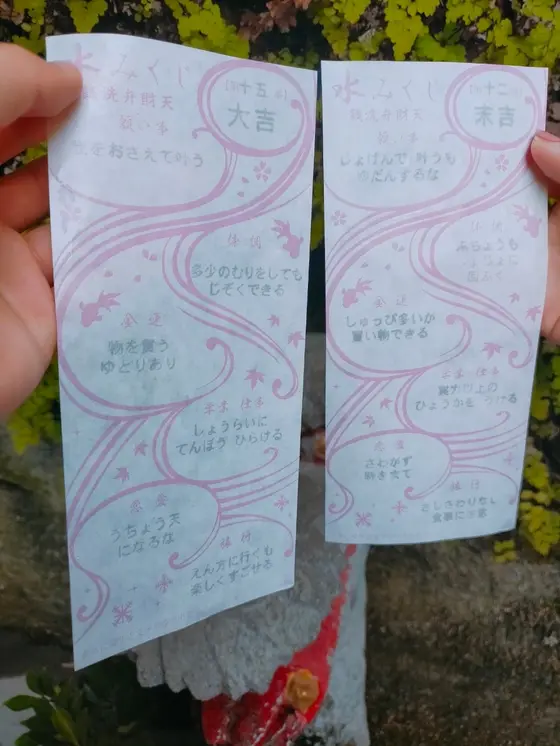 水みくじ
銭洗弁財天
第十五番
大吉
願い事
をおさえて叶う
体調
多少のむりをしても
じぞくできる
金運
物を買う
ゆとりあり
学業 仕事
しょうらいに
てんぼう ひらける
恋愛
うちょう天
になるな
旅行
えん方に行くも
楽しくすごせる
水みくじ
銭洗弁財天
十二
末吉
願い事
しょばんで 叶うも
ゆだんするな
体調
あちょうも
金運
しゅっぴ多いが
買い物できる
学業 仕事
実力以上の
ひょうかを うける
恋愛
さわがず
時を待て
旅行
さしさわりない
食事に注意